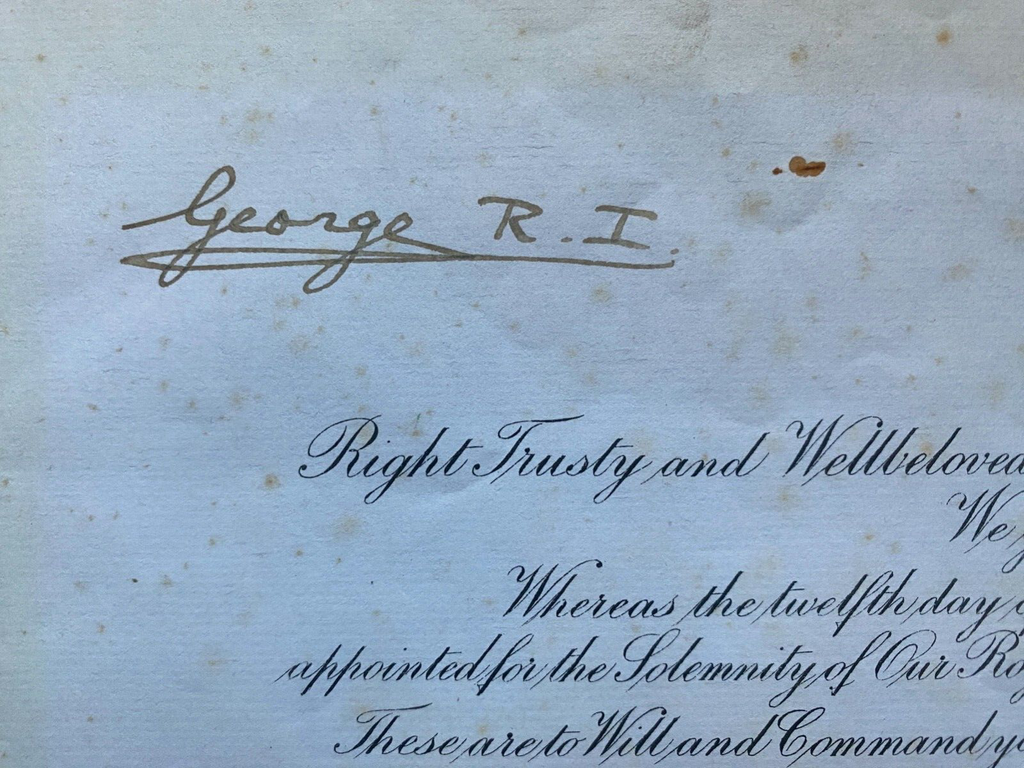 George R. I.
Right Trusty and Wellbeloved
We
Whereas the twelfth day
appointed for the Solemnity of Our
These are to Will and Command